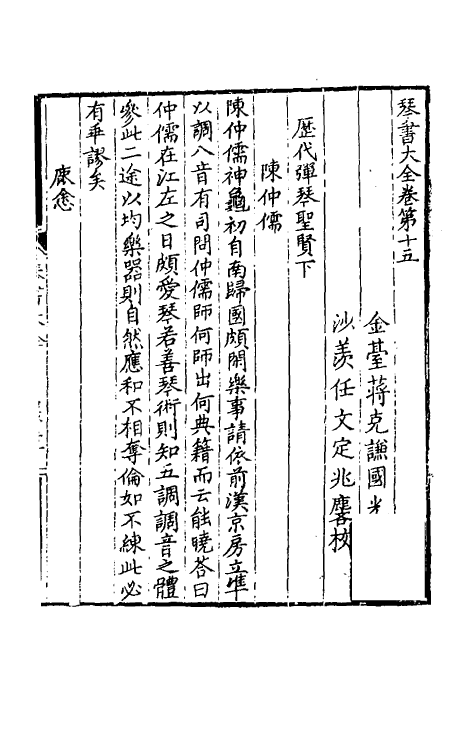 琴書大全卷第十五
金臺蔣克謙國光
沙羡任文定兆麐校
歷代彈琴聖賢下
陳仲儒
陳仲儒神龜初自南歸國頗閑樂事請依前漢京房立準
以調八音有司問仲儒師何師出何典籍而云能曉荅曰
仲儒在江左之日頗愛琴若善琴術則知五調調音之體
參此二途以均樂器則自然應和不相奪倫如不練此必
有乖謬矣
康悆